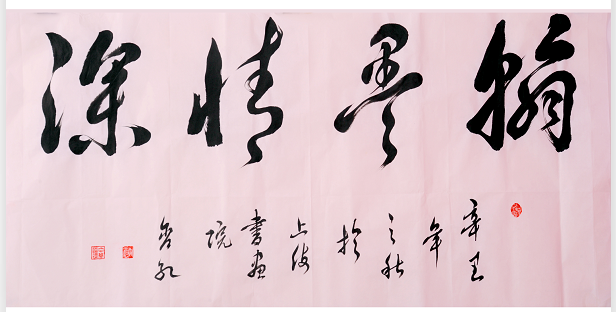 翰墨情深
辛丑
年
之秋
於
上海
書畫
院